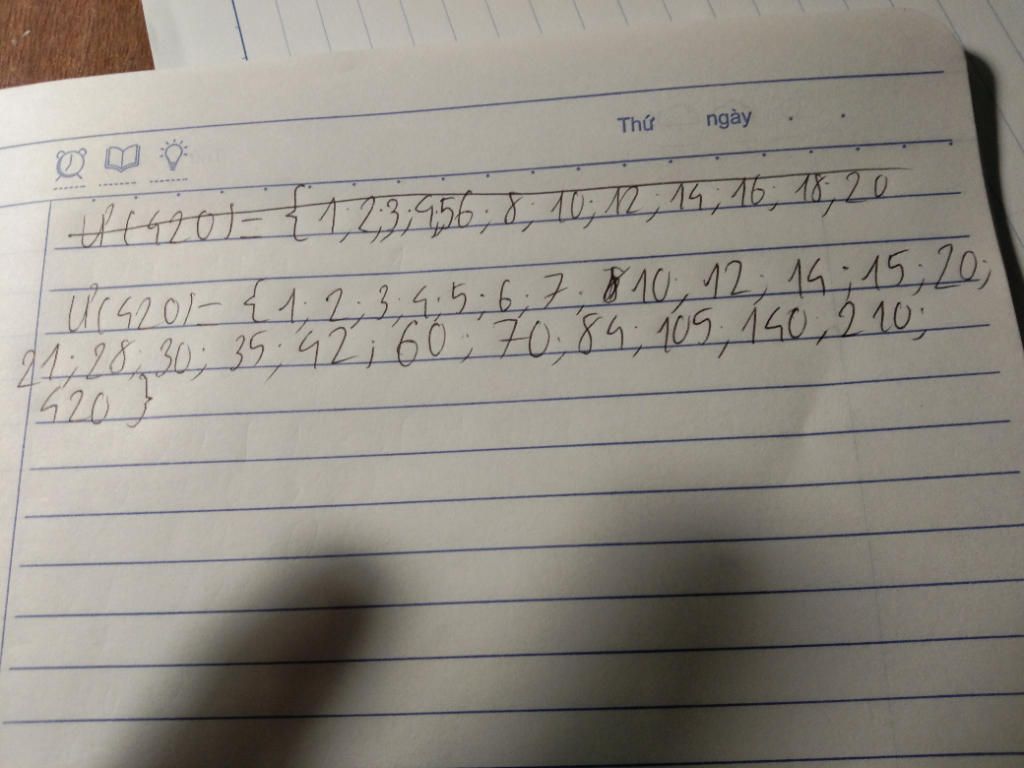 Thứ ngày . .
Ư(420) = { 1; 2; 3; 4; 5 6; 8; 10; 12; 14; 16; 18; 20
Ư(420) = { 1; 2; 3; 4; 5; 6; 7; 10; 12; 14; 15; 20;
21; 28; 30; 35; 42; 60; 70; 84; 105; 140; 210;
420 }